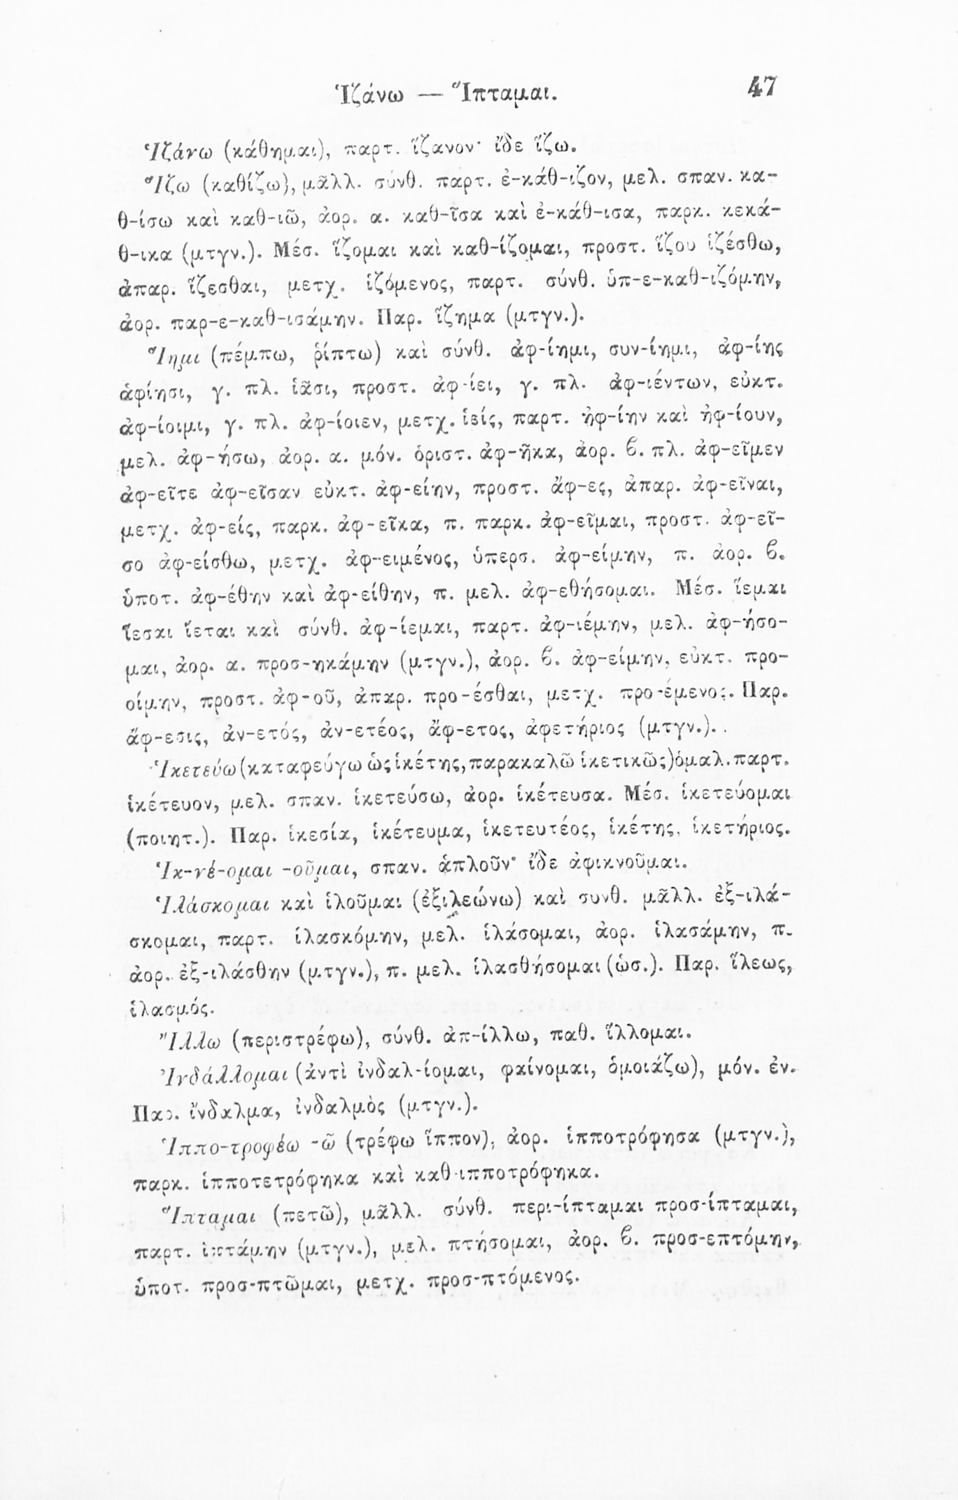 Ἱζάνω — Ἵπταμαι.
47
Ἱζάνω (κάθημαι), παρτ. ἵζανον· ἴδε ἵζω.
Ἵζω (καθίζω), μᾶλλ. σύνθ. παρτ. ἐ-κάθ-ιζον, μελ. σπαν. κα-
θ-ίσω καὶ καθ-ιῶ, ἀορ. α. καθ-ῖσα καὶ ἐ-κάθ-ισα, παρκ. κεκά-
θ-ικα (μτγν.). Μέσ. ἵζομαι καὶ καθ-ίζομαι, προστ. ἵζου ἱζέσθω,
ἀπαρ. ἵζεσθαι, μετχ. ἱζόμενος, παρτ. σύνθ. ὑπ-ε-καθ-ιζόμην,
ἀορ. παρ-ε-καθ-ισάμην. Παρ. ἵζημα (μτγν.).
Ἵημι (πέμπω, ῥίπτω) καὶ σύνθ. ἀφ-ίημι, συν-ίημι, ἀφ-ίης
ἀφίησι, γ. πλ. ἱᾶσι, προστ. ἀφ-ίει, γ. πλ. ἀφ-ιέντων, εὐκτ.
ἀφ-ίοιμι, γ. πλ. ἀφ-ίοιεν, μετχ. ἱείς, παρτ. ἠφ-ίην καὶ ἠφ-ίουν,
μελ. ἀφ-ήσω, ἀορ. α. μόν. ὁριστ. ἀφ-ῆκα, ἀορ. β. πλ. ἀφ-εῖμεν
ἀφ-εῖτε ἀφ-εῖσαν εὐκτ. ἀφ-είην, προστ. ἄφ-ες, ἀπαρ. ἀφ-εῖναι,
μετχ. ἀφ-είς, παρκ. ἀφ-εῖκα, π. παρκ. ἀφ-εῖμαι, προστ. ἀφ-εῖ-
σο ἀφ-είσθω, μετχ. ἀφ-ειμένος, ὑπερσ. ἀφ-είμην, π. ἀορ. β.
ὑποτ. ἀφ-έθην καὶ ἀφ-είθην, π. μελ. ἀφ-εθήσομαι. Μέσ. ἵεμαι
ἵεσαι ἵεται καὶ σύνθ. ἀφ-ίεμαι, παρτ. ἀφ-ιέμην, μελ. ἀφ-ήσο-
μαι, ἀορ. α. προσ-ηκάμην (μτγν.), ἀορ. β. ἀφ-είμην, εὐκτ. προ-
οίμην, προστ. ἀφ-οῦ, ἀπαρ. προ-έσθαι, μετχ. προ-έμενος. Παρ.
ἄφ-εσις, ἀν-ετός, ἀν-ετέος, ἄφ-ετος, ἀφετήριος (μτγν.).
Ἱκετεύω (καταφεύγω ὡς ἱκέτης, παρακαλῶ ἱκετικῶς) ὁμαλ. παρτ.
ἱκέτευον, μελ. σπαν. ἱκετεύσω, ἀορ. ἱκέτευσα. Μέσ. ἱκετεύομαι
(ποιητ.). Παρ. ἱκεσία, ἱκέτευμα, ἱκετευτέος, ἱκέτης, ἱκετήριος.
Ἱκ-νέ-ομαι -οῦμαι, σπαν. ἁπλοῦν· ἴδε ἀφικνοῦμαι.
Ἱλάσκομαι καὶ ἱλοῦμαι (ἐξιλεώνω) καὶ συνθ. μᾶλλ. ἐξ-ιλά-
σκομαι, παρτ. ἱλασκόμην, μελ. ἱλάσομαι, ἀορ. ἱλασάμην, π.
ἀορ. ἐξ-ιλάσθην (μτγν.), π. μελ. ἱλασθήσομαι (ὡσ.). Παρ. ἵλεως,
ἱλασμός.
Ἴλλω (περιστρέφω), σύνθ. ἀπ-ίλλω, παθ. ἵλλομαι.
Ἰνδάλλομαι (ἀντὶ ἰνδαλ-ίομαι, φαίνομαι, ὁμοιάζω), μόν. ἐν.
Παρ. ἴνδαλμα, ἰνδαλμὸς (μτγν.).
Ἱππο-τροφέω -ῶ (τρέφω ἵππον), ἀορ. ἱπποτρόφησα (μτγν.),
παρκ. ἱπποτετρόφηκα καὶ καθ-ιπποτρόφηκα.
Ἵπταμαι (πετῶ), μᾶλλ. σύνθ. περι-ίπταμαι προσ-ίπταμαι,
παρτ. ἱπτάμην (μτγν.), μελ. πτήσομαι, ἀορ. β. προσ-επτόμην,
ὑποτ. προσ-πτῶμαι, μετχ. προσ-πτόμενος.